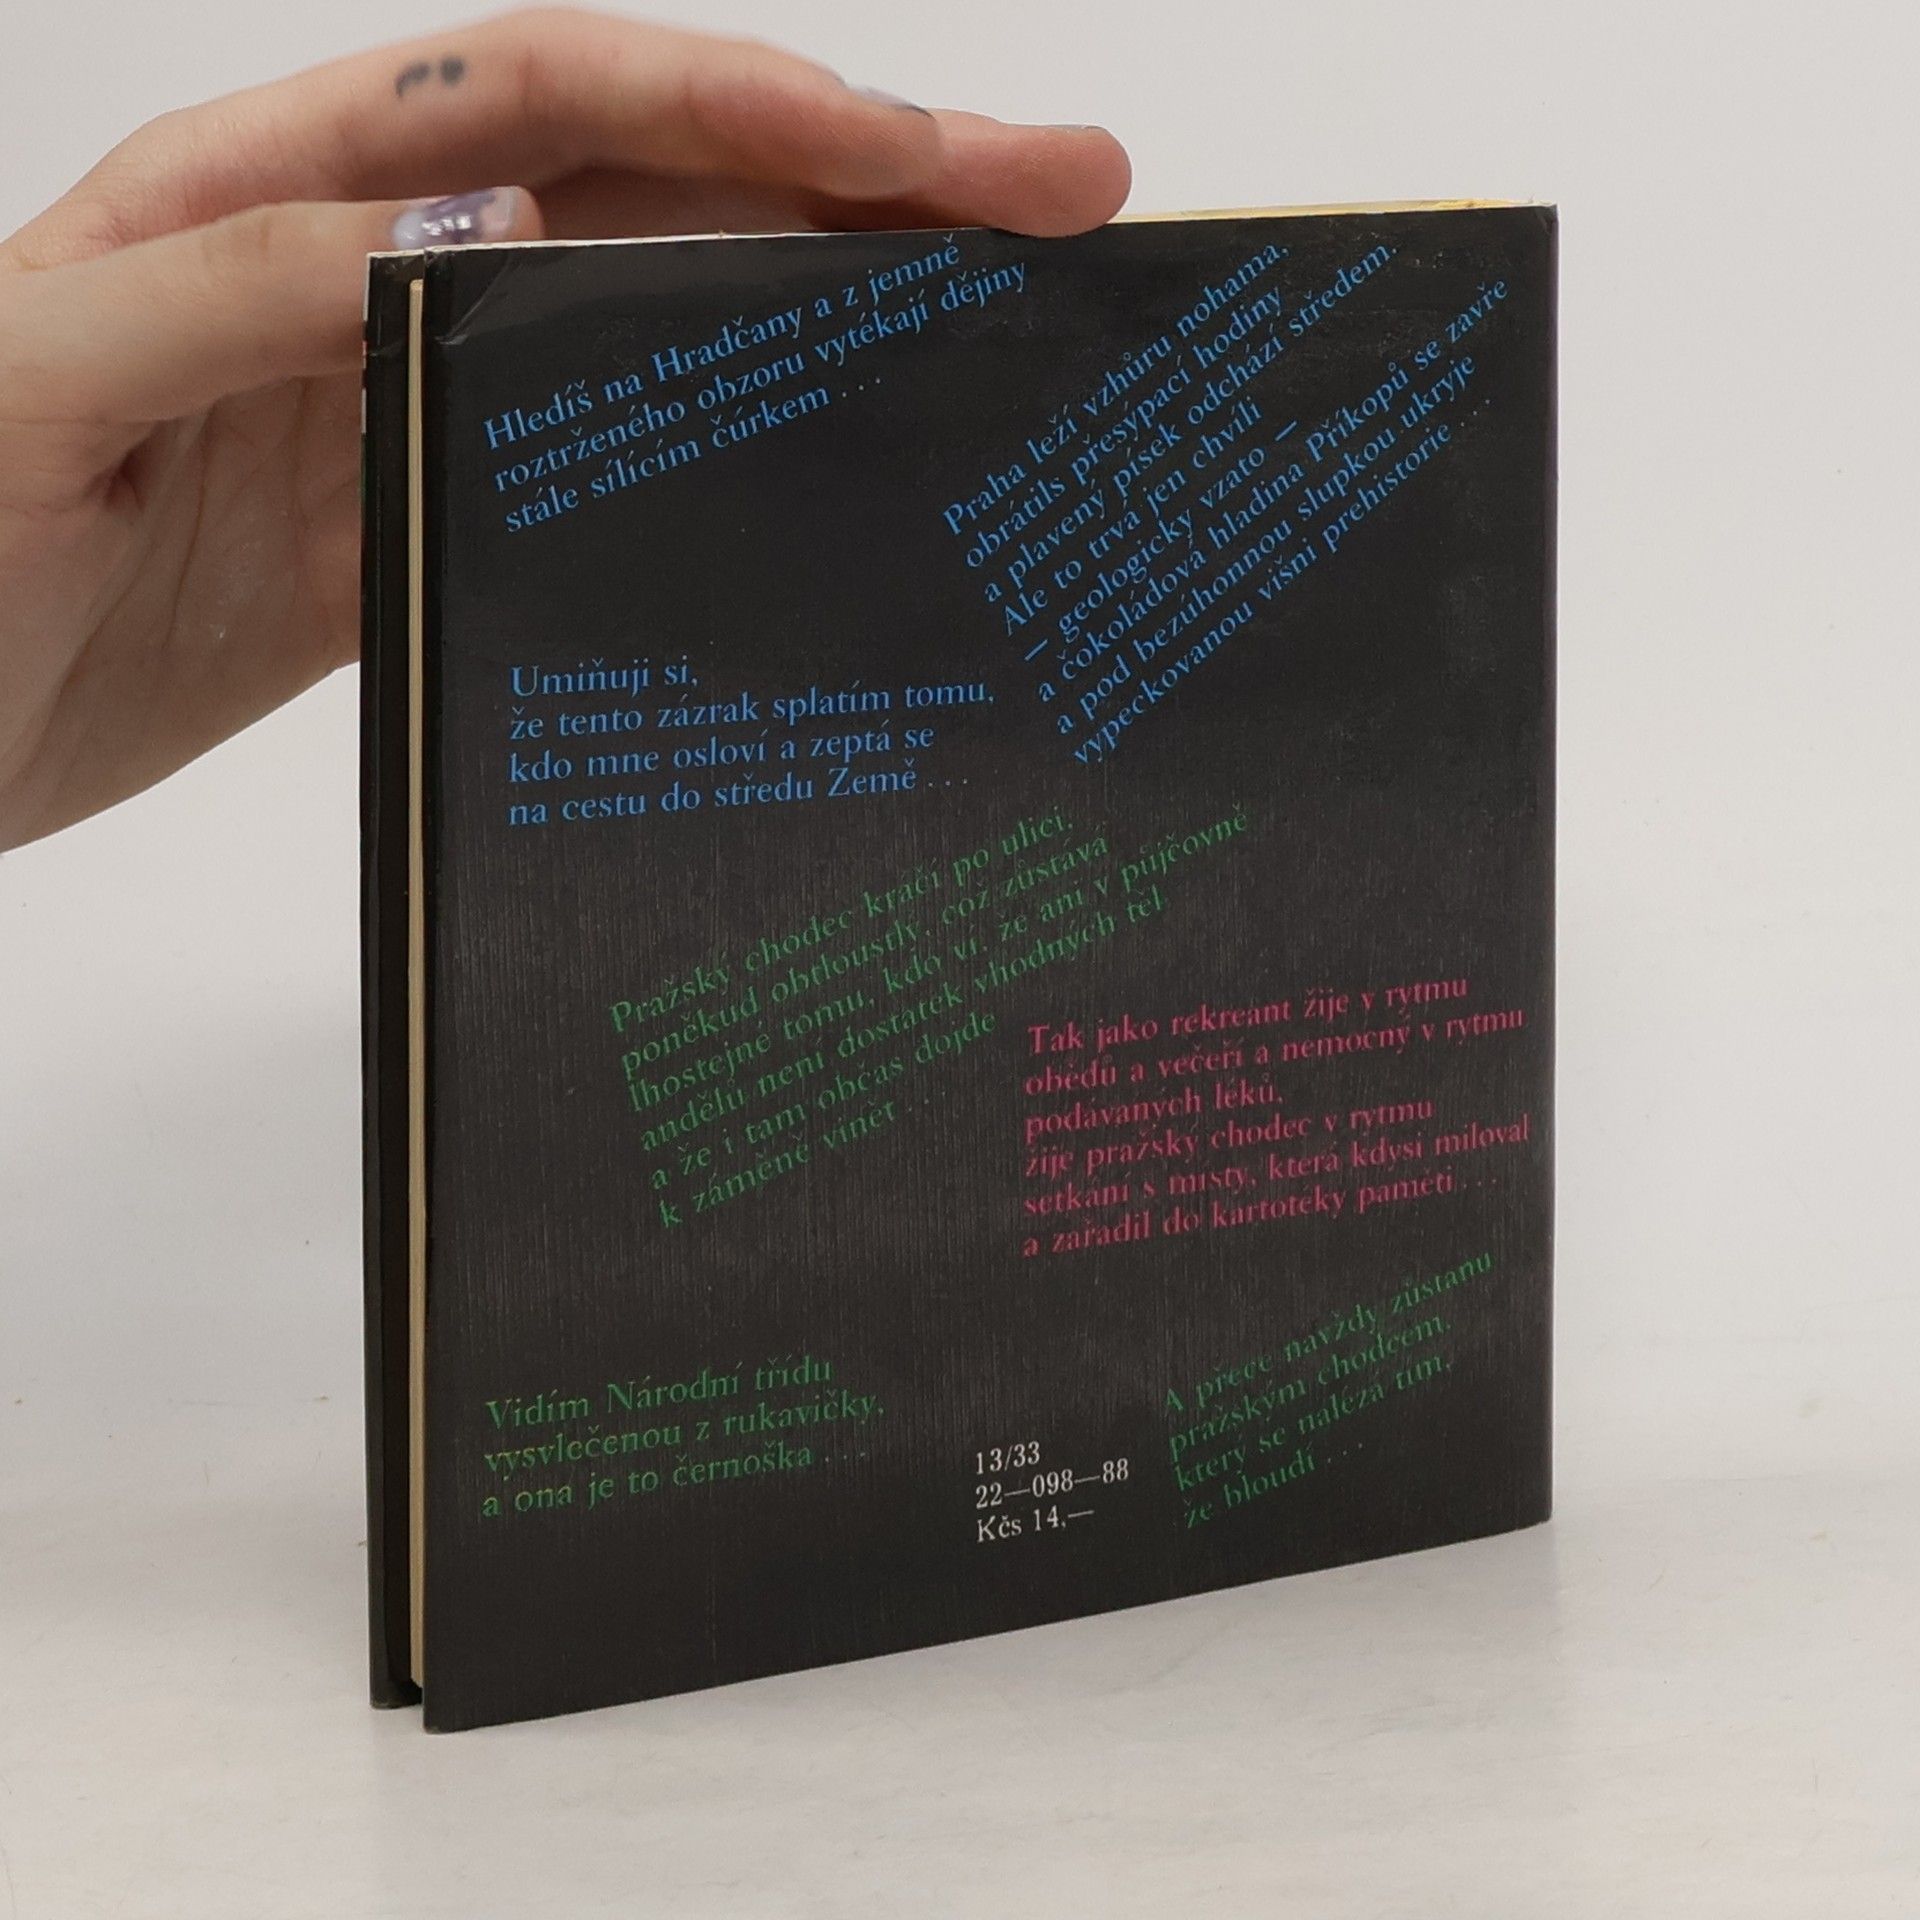 Hledíš na Hradčany a z jemně
roztrženého obzoru vytékají dějiny
stále sílícím čúrkem . . .
Praha leží vzhůru nohama,
obrátils přesýpací hodiny
a plavený písek odchází středem.
Ale to trvá jen chvíli
— geologicky vzato —
a čokoládová hladina Příkopů se zavře
a pod bezúhonnou slupkou ukryje
vypeckovanou višni prehistorie . . .
Umiňuji si,
že tento zázrak splatím tomu,
kdo mne osloví a zeptá se
na cestu do středu Země . . .
Pražský chodec kráčí po ulici,
poněkud obtloustlý, což zůstává
lhostejné tomu, kdo ví, že ani v půjčovně
andělů není dostatek vhodných těl
a že i tam občas dojde
k záměně vinět . . .
Tak jako rekreant žije v rytmu
obědů a večeří a nemocný v rytmu
podávaných léků,
žije pražský chodec v rytmu
setkání s místy, která kdysi miloval
a zařadil do kartotéky paměti . . .
Vidím Národní třídu
vysvlečenou z rukavičky,
a ona je to černoška . . .
A přece navždy zůstanu
pražským chodcem,
který se nalézá tím,
že bloudí . . .
13/33
22—098—88
Kčs 14,—